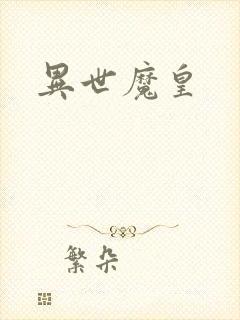 異世魔皇
繁朵